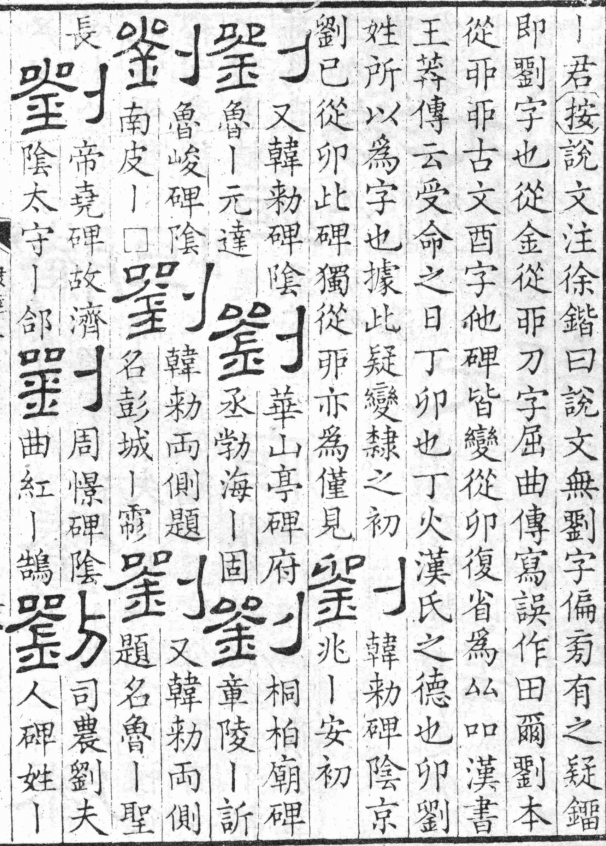 丨君按說文注徐鍇曰說文無劉字偏旁有之疑鐂
即劉字也從金從丣刀字屈曲傳寫誤作田爾劉本
從丣丣古文酉字他碑皆變從卯復省爲厸吅漢書
王莽傳云受命之日丁卯也丁火漢氏之德也卯劉
姓所以爲字也據此疑變隸之初
劉已從卯此碑獨從丣亦爲僅見
劉
韓勑碑陰京
兆丨安初
劉
又韓勑碑陰
魯丨元達
劉
華山亭碑府
丞勃海丨固
劉
桐柏廟碑
章陵丨訢
劉
魯峻碑陰
南皮丨□
劉
韓勑兩側題
名彭城丨
劉
又韓勑兩側
題名魯丨聖
長
劉
帝堯碑故濟
陰太守丨郃
劉
周憬碑陰
曲紅丨鵠
劉
司農劉夫
人碑姓丨